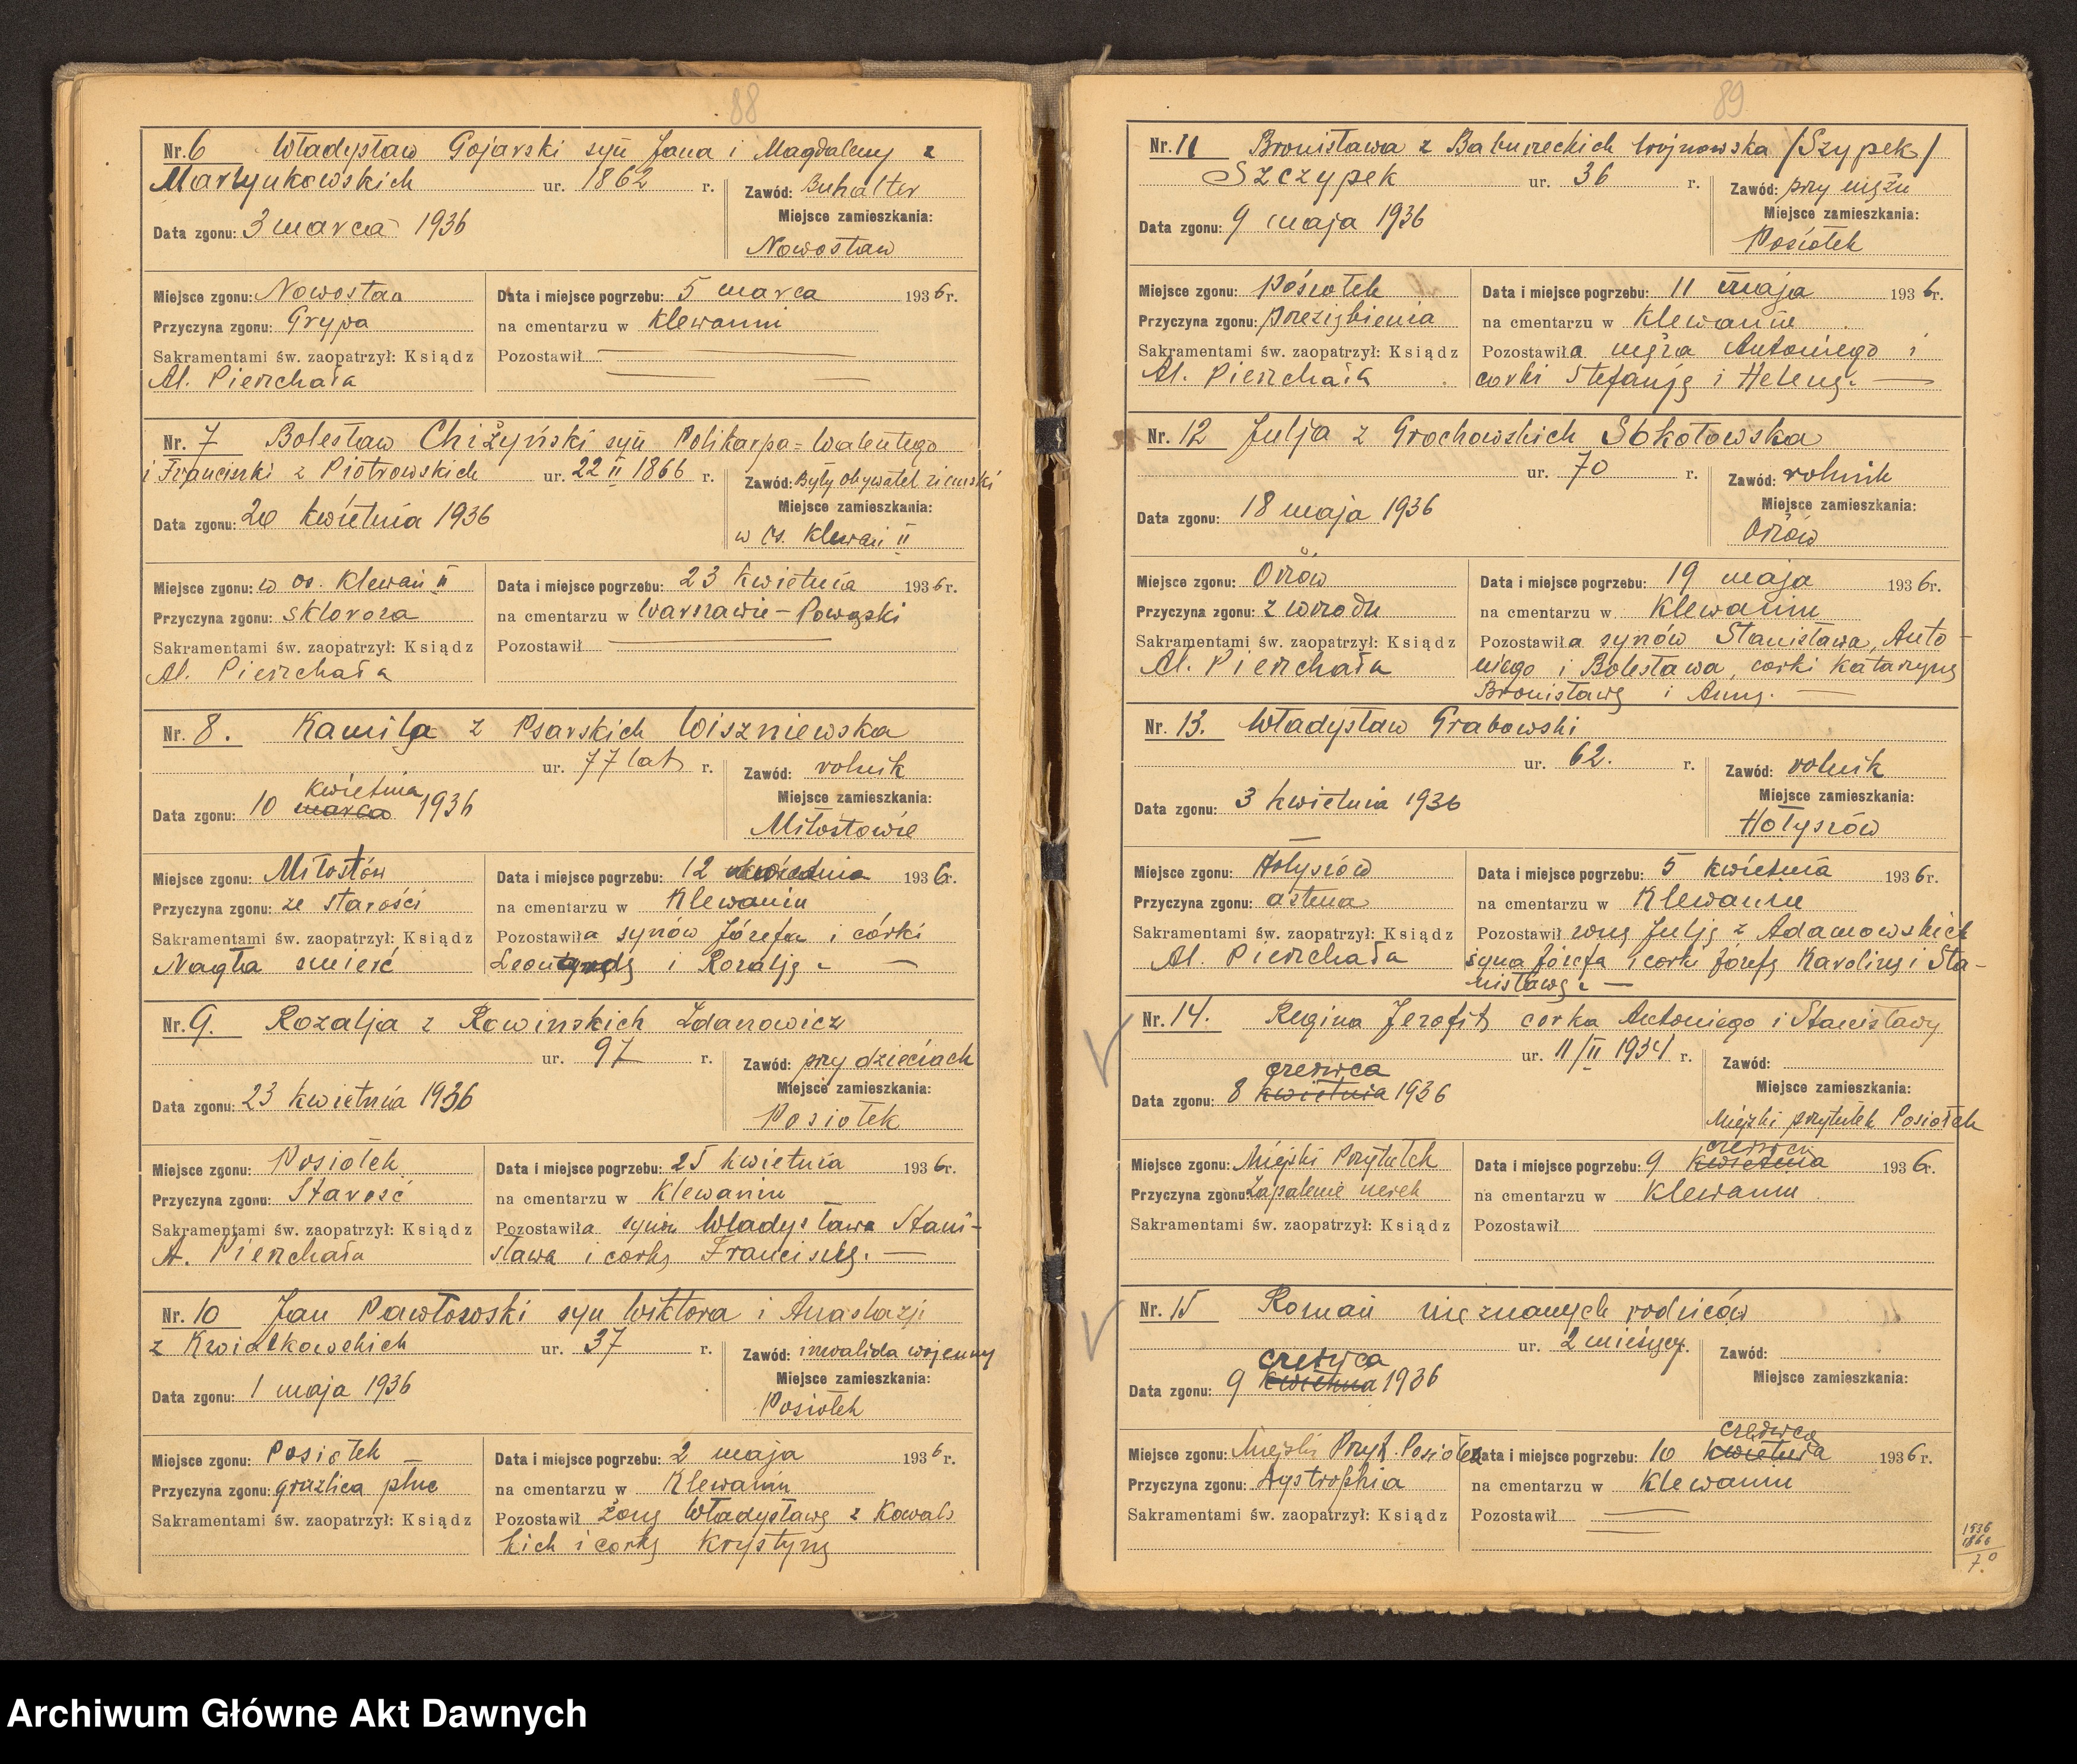 88
Nr. 6 Władysław Gojarski syn Jana i Magdaleny z
Martynkowskich ur. 1862 r. Zawód: Buhalter
Miejsce zamieszkania:
Data zgonu: 3 marca 1936
Nowostaw
Miejsce zgonu: Nowostaw Data i miejsce pogrzebu: 5 marca 1936 r.
Przyczyna zgonu: Grypa na cmentarzu w Klewaniu
Sakramentami św. zaopatrzył: Ksiądz Pozostawił
Al. Pierzchała
Nr. 7 Bolesław Chiżyński syn Polikarpa-Walentego
i Franciszki z Piotrowskich ur. 22 II 1866 r. Zawód: Były obywatel ziemski
Miejsce zamieszkania:
Data zgonu: 20 kwietnia 1936
w os. Klewań II
Miejsce zgonu: w os. Klewań II Data i miejsce pogrzebu: 23 kwietnia 1936 r.
Przyczyna zgonu: skleroza na cmentarzu w Warszawie - Powązki
Sakramentami św. zaopatrzył: Ksiądz Pozostawił
Al. Pierzchała
Nr. 8. Kamila z Psarskich Wiszniewska
ur. 77 lat r. Zawód: rolnik
kwietnia
Miejsce zamieszkania:
Data zgonu: 10 marca 1936
Miłostowie
Miejsce zgonu: Miłostów Data i miejsce pogrzebu: 12 kwietnia 1936 r.
Przyczyna zgonu: ze starości na cmentarzu w Klewaniu
Sakramentami św. zaopatrzył: Ksiądz Pozostawiła synów Józefa i córki
Nagła śmierć i Rozalję. —
Nr. 9. Rozalja z Rowińskich Zdanowicz
ur. 97 r. Zawód: przy dzieciach
Miejsce zamieszkania:
Data zgonu: 23 kwietnia 1936
Posiołek
Miejsce zgonu: Posiołek Data i miejsce pogrzebu: 25 kwietnia 1936 r.
Przyczyna zgonu: Starość na cmentarzu w Klewaniu
Sakramentami św. zaopatrzył: Ksiądz Pozostawiła synów Władysława Stani-
A. Pierzchała sława i córkę Franciszkę. —
Nr. 10 Jan Pawłowski syn Wiktora i Anastazji
z Kwiatkowskich ur. 37 r. Zawód: inwalida wojenny
Miejsce zamieszkania:
Data zgonu: 1 maja 1936
Posiołek
Miejsce zgonu: Posiołek Data i miejsce pogrzebu: 2 maja 1936 r.
Przyczyna zgonu: gruźlica płuc na cmentarzu w Klewaniu
Sakramentami św. zaopatrzył: Ksiądz Pozostawił żonę Władysławę z Kowals
kich i córkę Krystynę
89
Nr. 11 Bronisława z Wojnowska /Szypek/
Szczypek ur. 36 r. Zawód: przy mężu
Miejsce zamieszkania:
Data zgonu: 9 maja 1936
Posiołek
Miejsce zgonu: Posiołek Data i miejsce pogrzebu: 11 maja 1936 r.
Przyczyna zgonu: przeziębienia na cmentarzu w Klewanie
Sakramentami św. zaopatrzył: Ksiądz Pozostawiła męża Antoniego i
Al. Pierzchała corki Stefanję i Helenę. —
Nr. 12 Julja z Grochowskich Sokołowska
ur. 70 r. Zawód: rolnik
Miejsce zamieszkania:
Data zgonu: 18 maja 1936
Orżów
Miejsce zgonu: Orżów Data i miejsce pogrzebu: 19 maja 1936 r.
Przyczyna zgonu: z wrzodu na cmentarzu w Klewaniu
Sakramentami św. zaopatrzył: Ksiądz Pozostawiła synów Stanisława, Anto-
Al. Pierzchała niego i Bolesława, corki Katarzynę
Bronisławę i Annę. —
Nr. 13. Władysław Grabowski
ur. 62. r. Zawód: rolnik
Miejsce zamieszkania:
Data zgonu: 3 kwietnia 1936
Hołyszów
Miejsce zgonu: Hołyszów Data i miejsce pogrzebu: 5 kwietnia 1936 r.
Przyczyna zgonu: astma na cmentarzu w Klewaniu
Sakramentami św. zaopatrzył: Ksiądz Pozostawił żonę Julję z Adamowskich
Al. Pierzchała syna Józefa i corki Józefę Karolinę i Sta-
nisławę. —
Nr. 14. Regina Jerofit corka Antoniego i Stanisławy
ur. 11/II 1934 r. Zawód:
czerwca
Miejsce zamieszkania:
Data zgonu: 8 kwietnia 1936
Miejski przytułek Posiołek
czerwca
Miejsce zgonu: Miejski Przytułek Data i miejsce pogrzebu: 9 kwietnia 1936 r.
Przyczyna zgonu: Zapalenie nerek na cmentarzu w Klewaniu
Sakramentami św. zaopatrzył: Ksiądz Pozostawił
Nr. 15 Roman nieznanych rodziców
ur. 2 miesięcy. Zawód:
czerwca
Miejsce zamieszkania:
Data zgonu: 9 kwietnia 1936
czerwca
Miejsce zgonu: Miejski Przyt. Posiołek Data i miejsce pogrzebu: 10 kwietnia 1936 r.
Przyczyna zgonu: Dystrophia na cmentarzu w Klewaniu
Sakramentami św. zaopatrzył: Ksiądz Pozostawił
1936
1866
70
Archiwum Główne Akt Dawnych